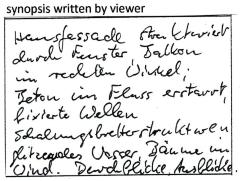 synopsis written by viewer
Hausfassade strukturiert
durch Fenster, Balkon
im rechten Winkel;
Beton im Fluss erstarrt,
fixierte Wellen
Schalungsbretterstrukturen
Wasser Bäume im
Wind. Durchblicke, Ausblicke.